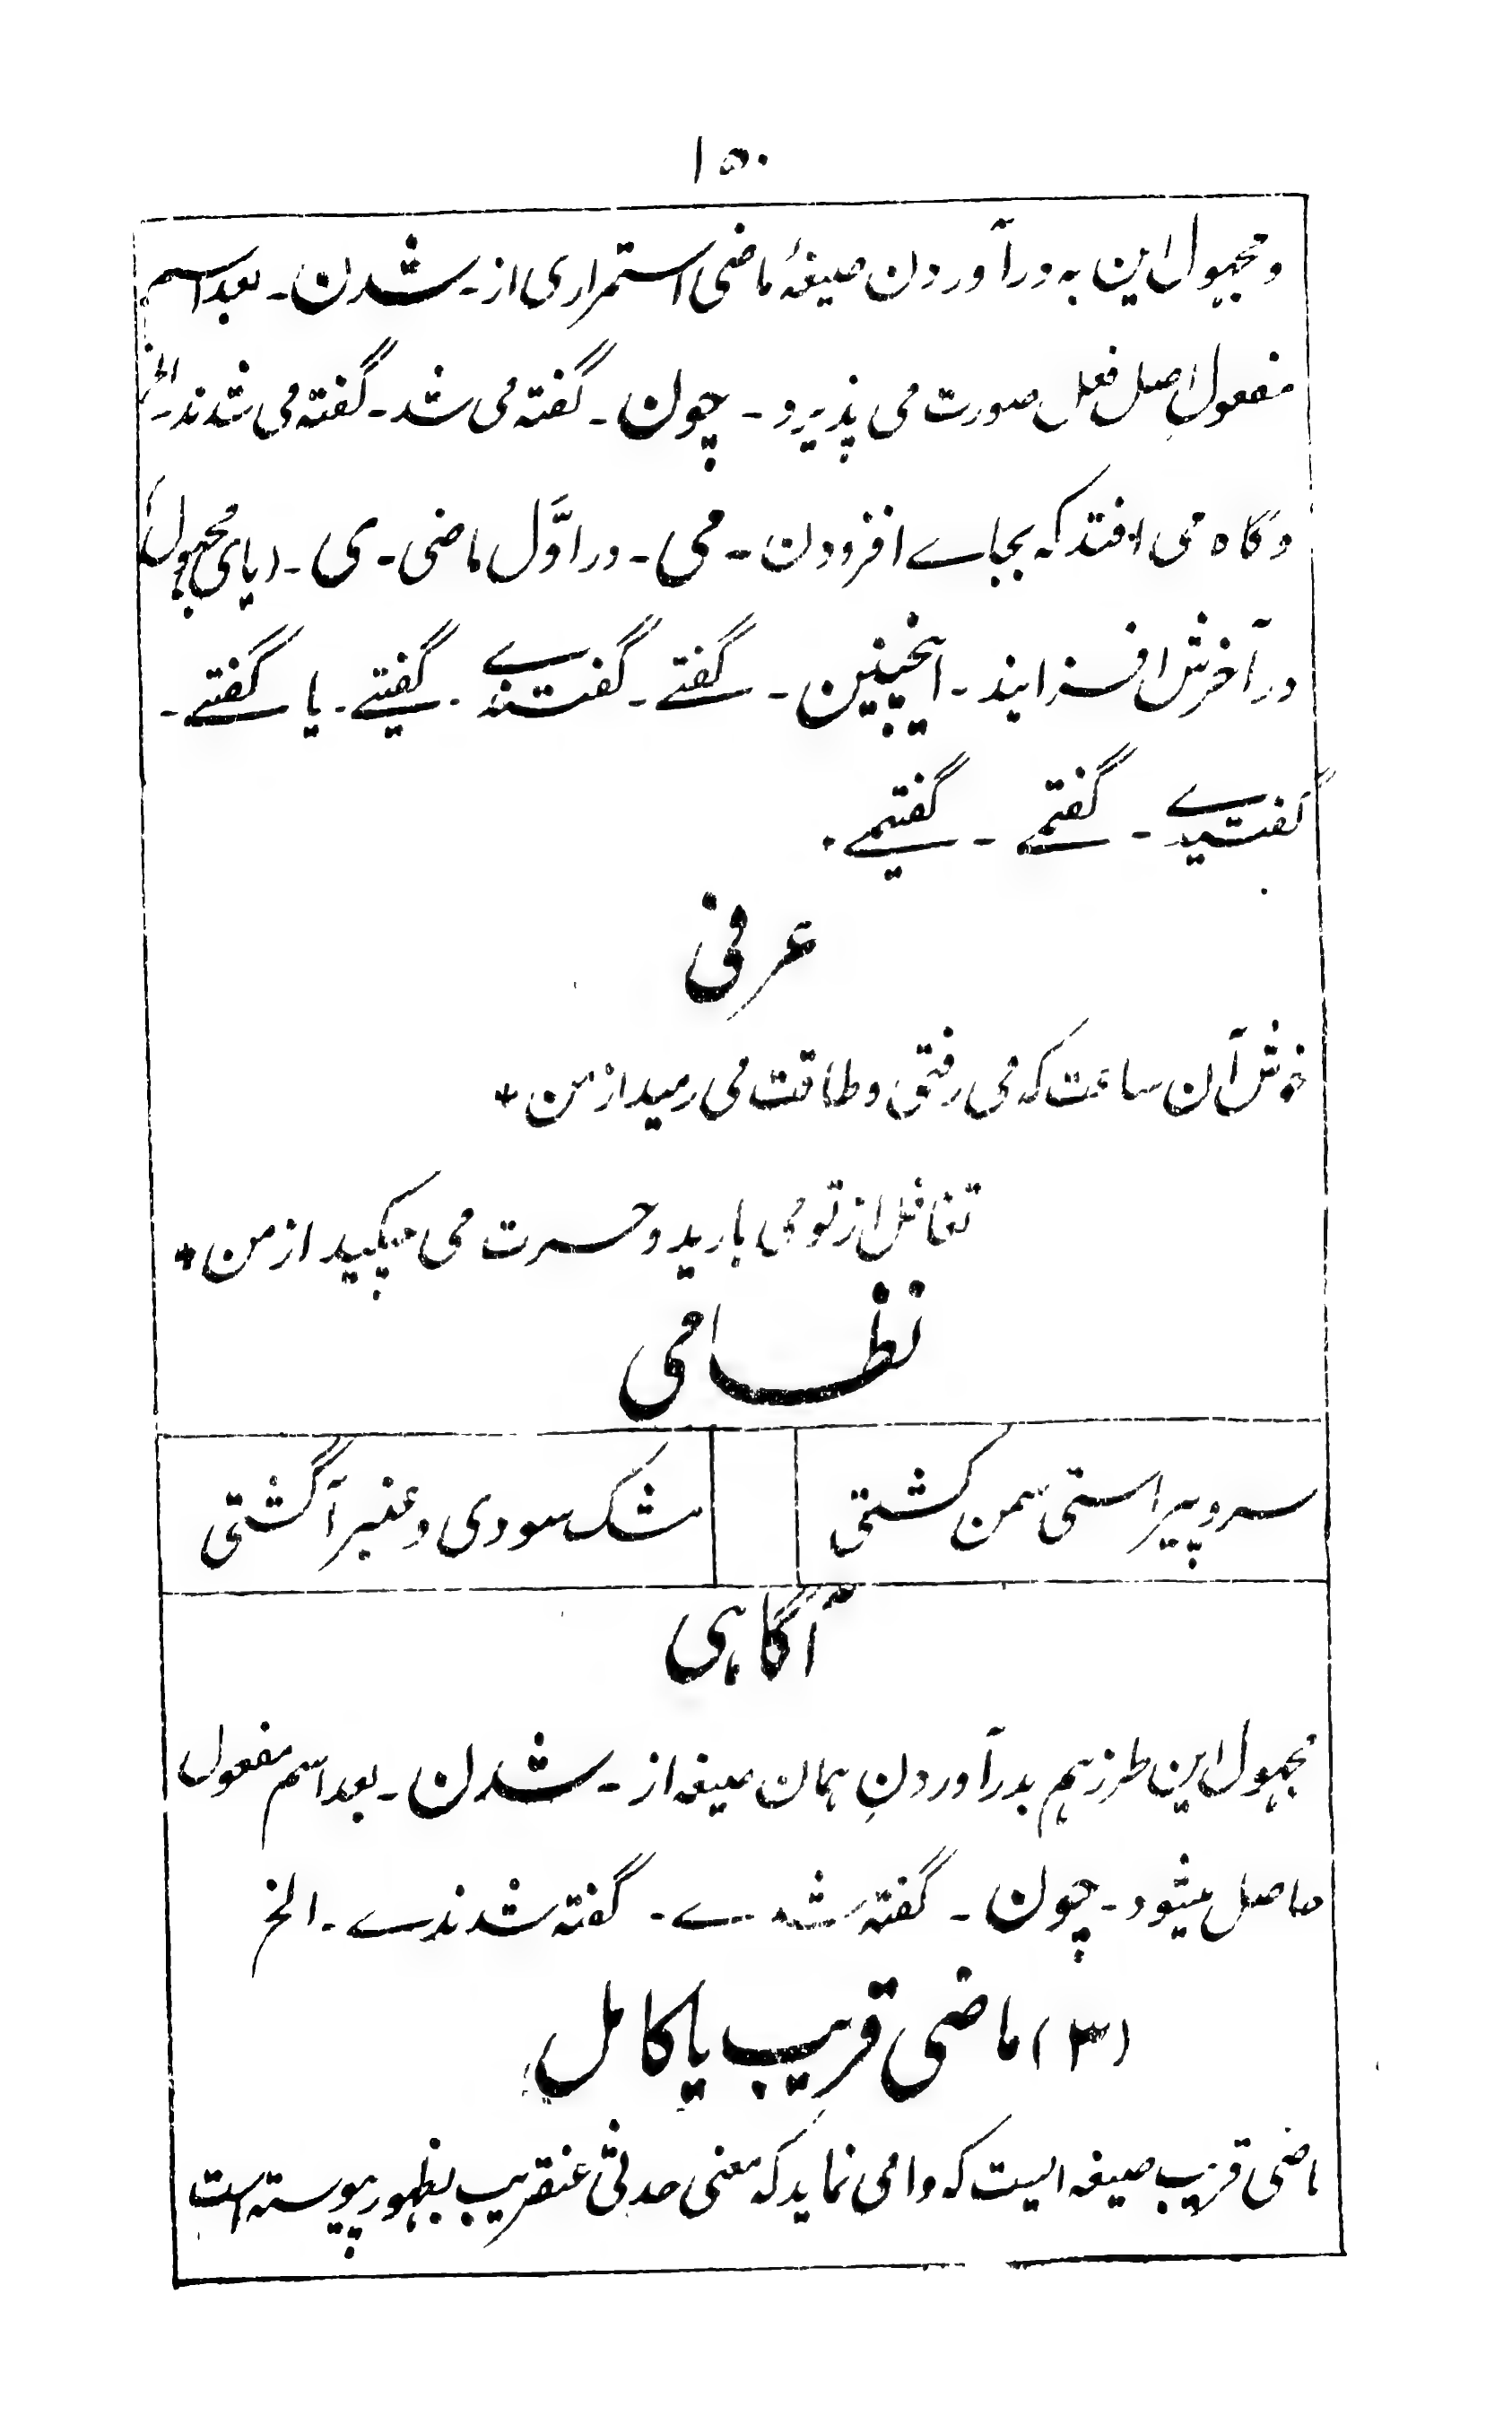 ۱۵۰
و مجہول این بہ در آوردن صیغۂ ماضی استمراری از۔ شدن۔ بعد اسم
مفعول اصل فعل صورت می پذیرد۔ چون۔ گفتہ می شد۔ گفتہ می شدند۔ الخ
و گاہ می افتد کہ بجاے افزودن۔ می۔ در اوَّل ماضی۔ ی۔ (یای مجہول)
در آخرش افزایند۔ اینچنین۔ گفتے۔ گفتندے۔ گفتیے۔ یا گفتے۔
گفتیدے۔ گفتمے۔ گفتیمے۔
عرفی
خوش آن ساعت کہ می رفتی و طاقت می رمید از من *
تغافل از تو می بارید و حسرت می چکید از من *
نظامی
سرو پیراستی سمن کشتی مشک سودی و عنبر آگشتی
آگاہی
مجہول این طرز ہم بدر آوردنِ ہمان صیغہ از۔ شدن۔ بعد اسم مفعول
حاصل میشود۔ چون۔ گفتہ شدے۔ گفتہ شدندے۔ الخ
(۳) ماضی قریب یا کامل
ماضی قریب صیغہ ایست کہ وا می نماید کہ معنی حدثی عنقریب بظہور پیوستہ است